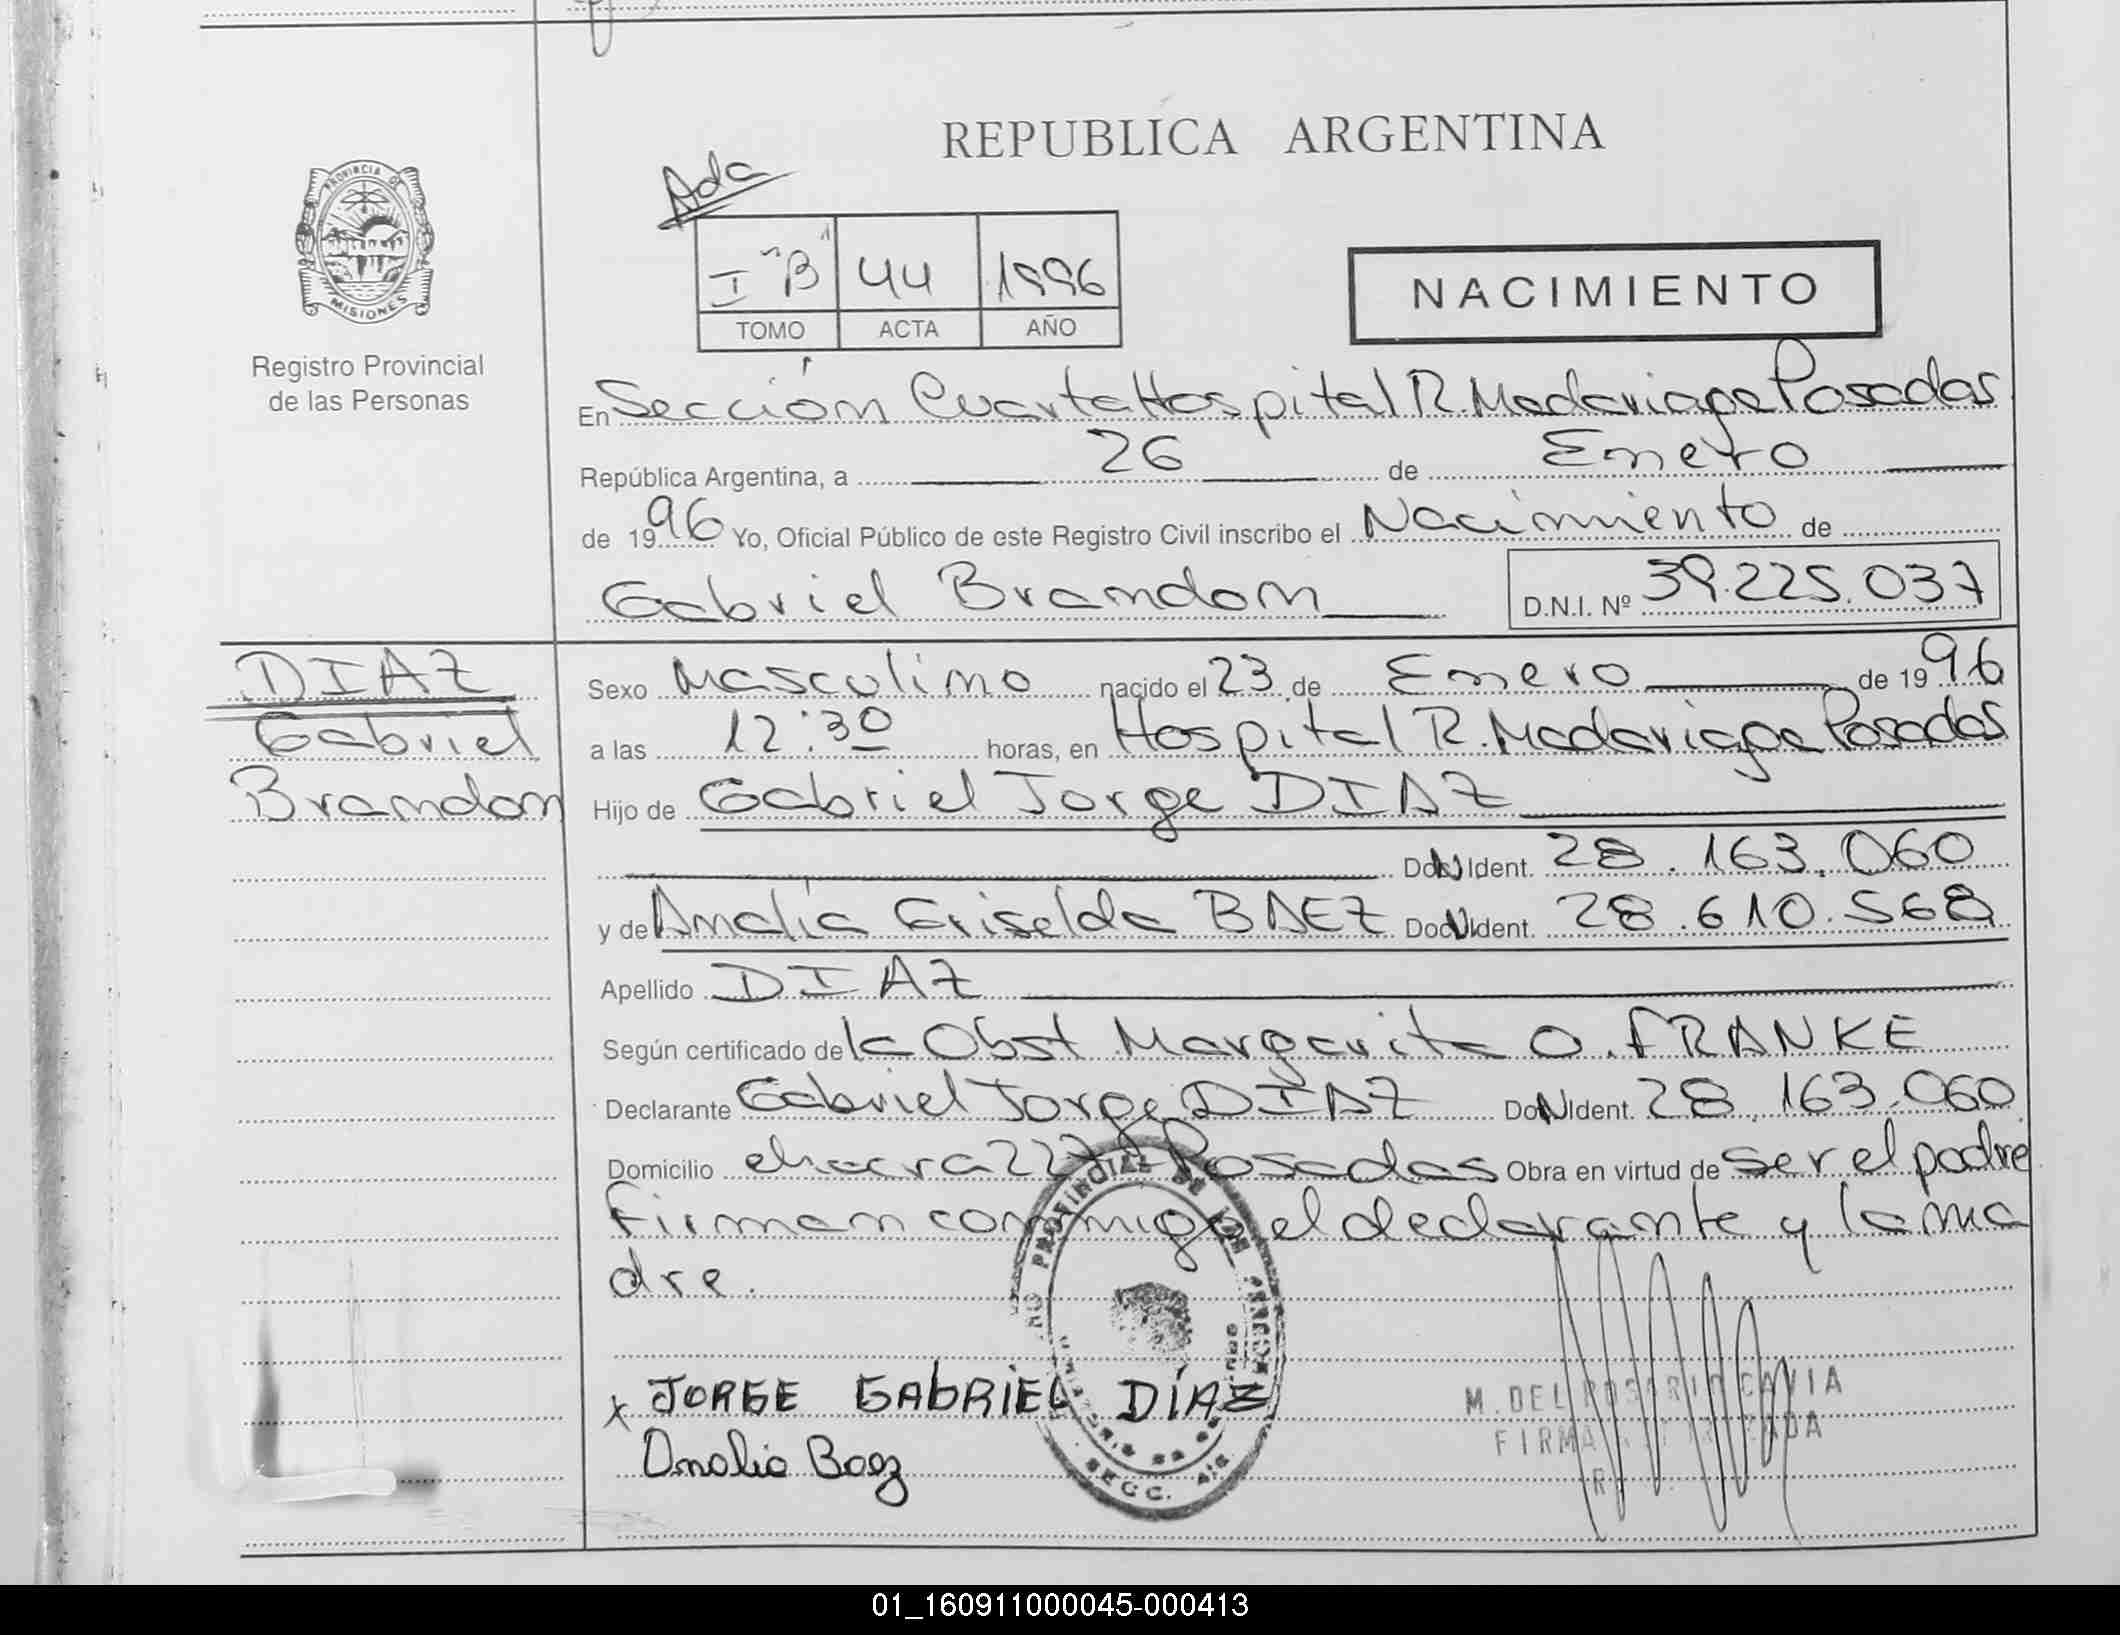 REPUBLICA ARGENTINA
Ada
I "B" 44 1996
TOMO ACTA AÑO
NACIMIENTO
PROVINCIA DE
MISIONES
Registro Provincial
de las Personas
En Sección Cuarta Hospital R. Madariaga Posadas
República Argentina, a 26 de Enero
de 1996 Yo, Oficial Público de este Registro Civil inscribo el Nacimiento de
Gabriel Brandon D.N.I. Nº 39.225.037
DIAZ
Gabriel
Brandon
Sexo Masculino nacido el 23 de Enero de 1996
a las 12:30 horas, en Hospital R. Madariaga Posadas
Hijo de Gabriel Jorge DIAZ
Doc. Ident. 28.163.060
y de Amalia Griselda BAEZ Doc. Ident. 28.610.568
Apellido DIAZ
Según certificado de la Obst Margarita O. FRANKE
Declarante Gabriel Jorge DIAZ Doc. Ident. 28.163.060
Domicilio chacra 227 Posadas Obra en virtud de ser el padre
Firman conmigo el declarante y la ma
dre.
x JORGE GABRIEL DÍAZ
Amalia Baez
M. DEL ROSARIO CAVIA
FIRMA
PROVINCIAL DE LAS
SECC. 4ta
01_160911000045-000413